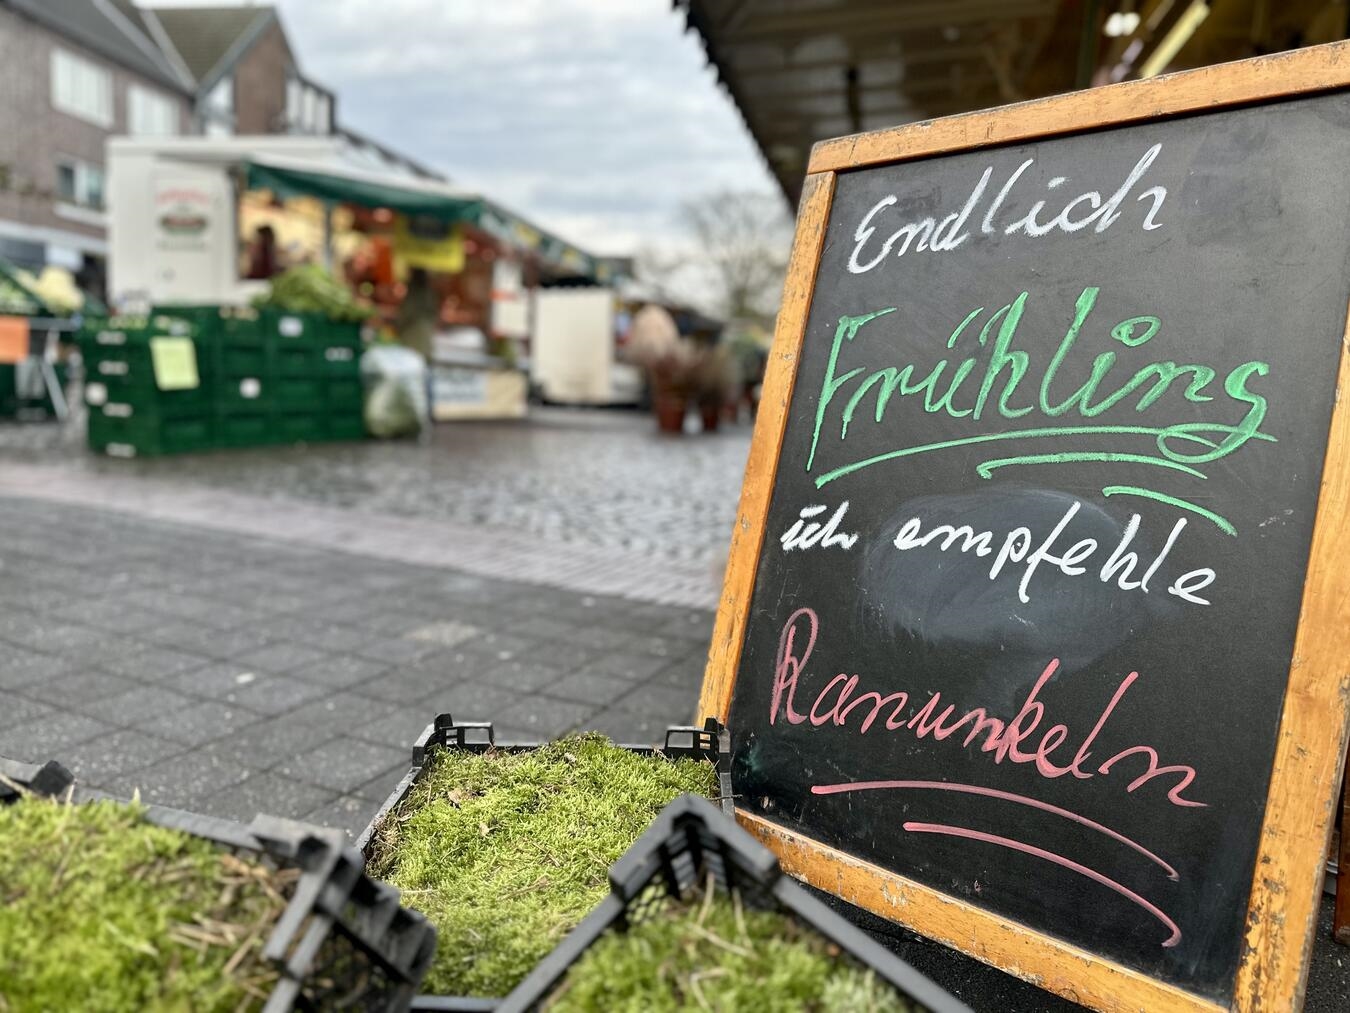 Endlich
Frühling
ich empfehle
Ranunkeln